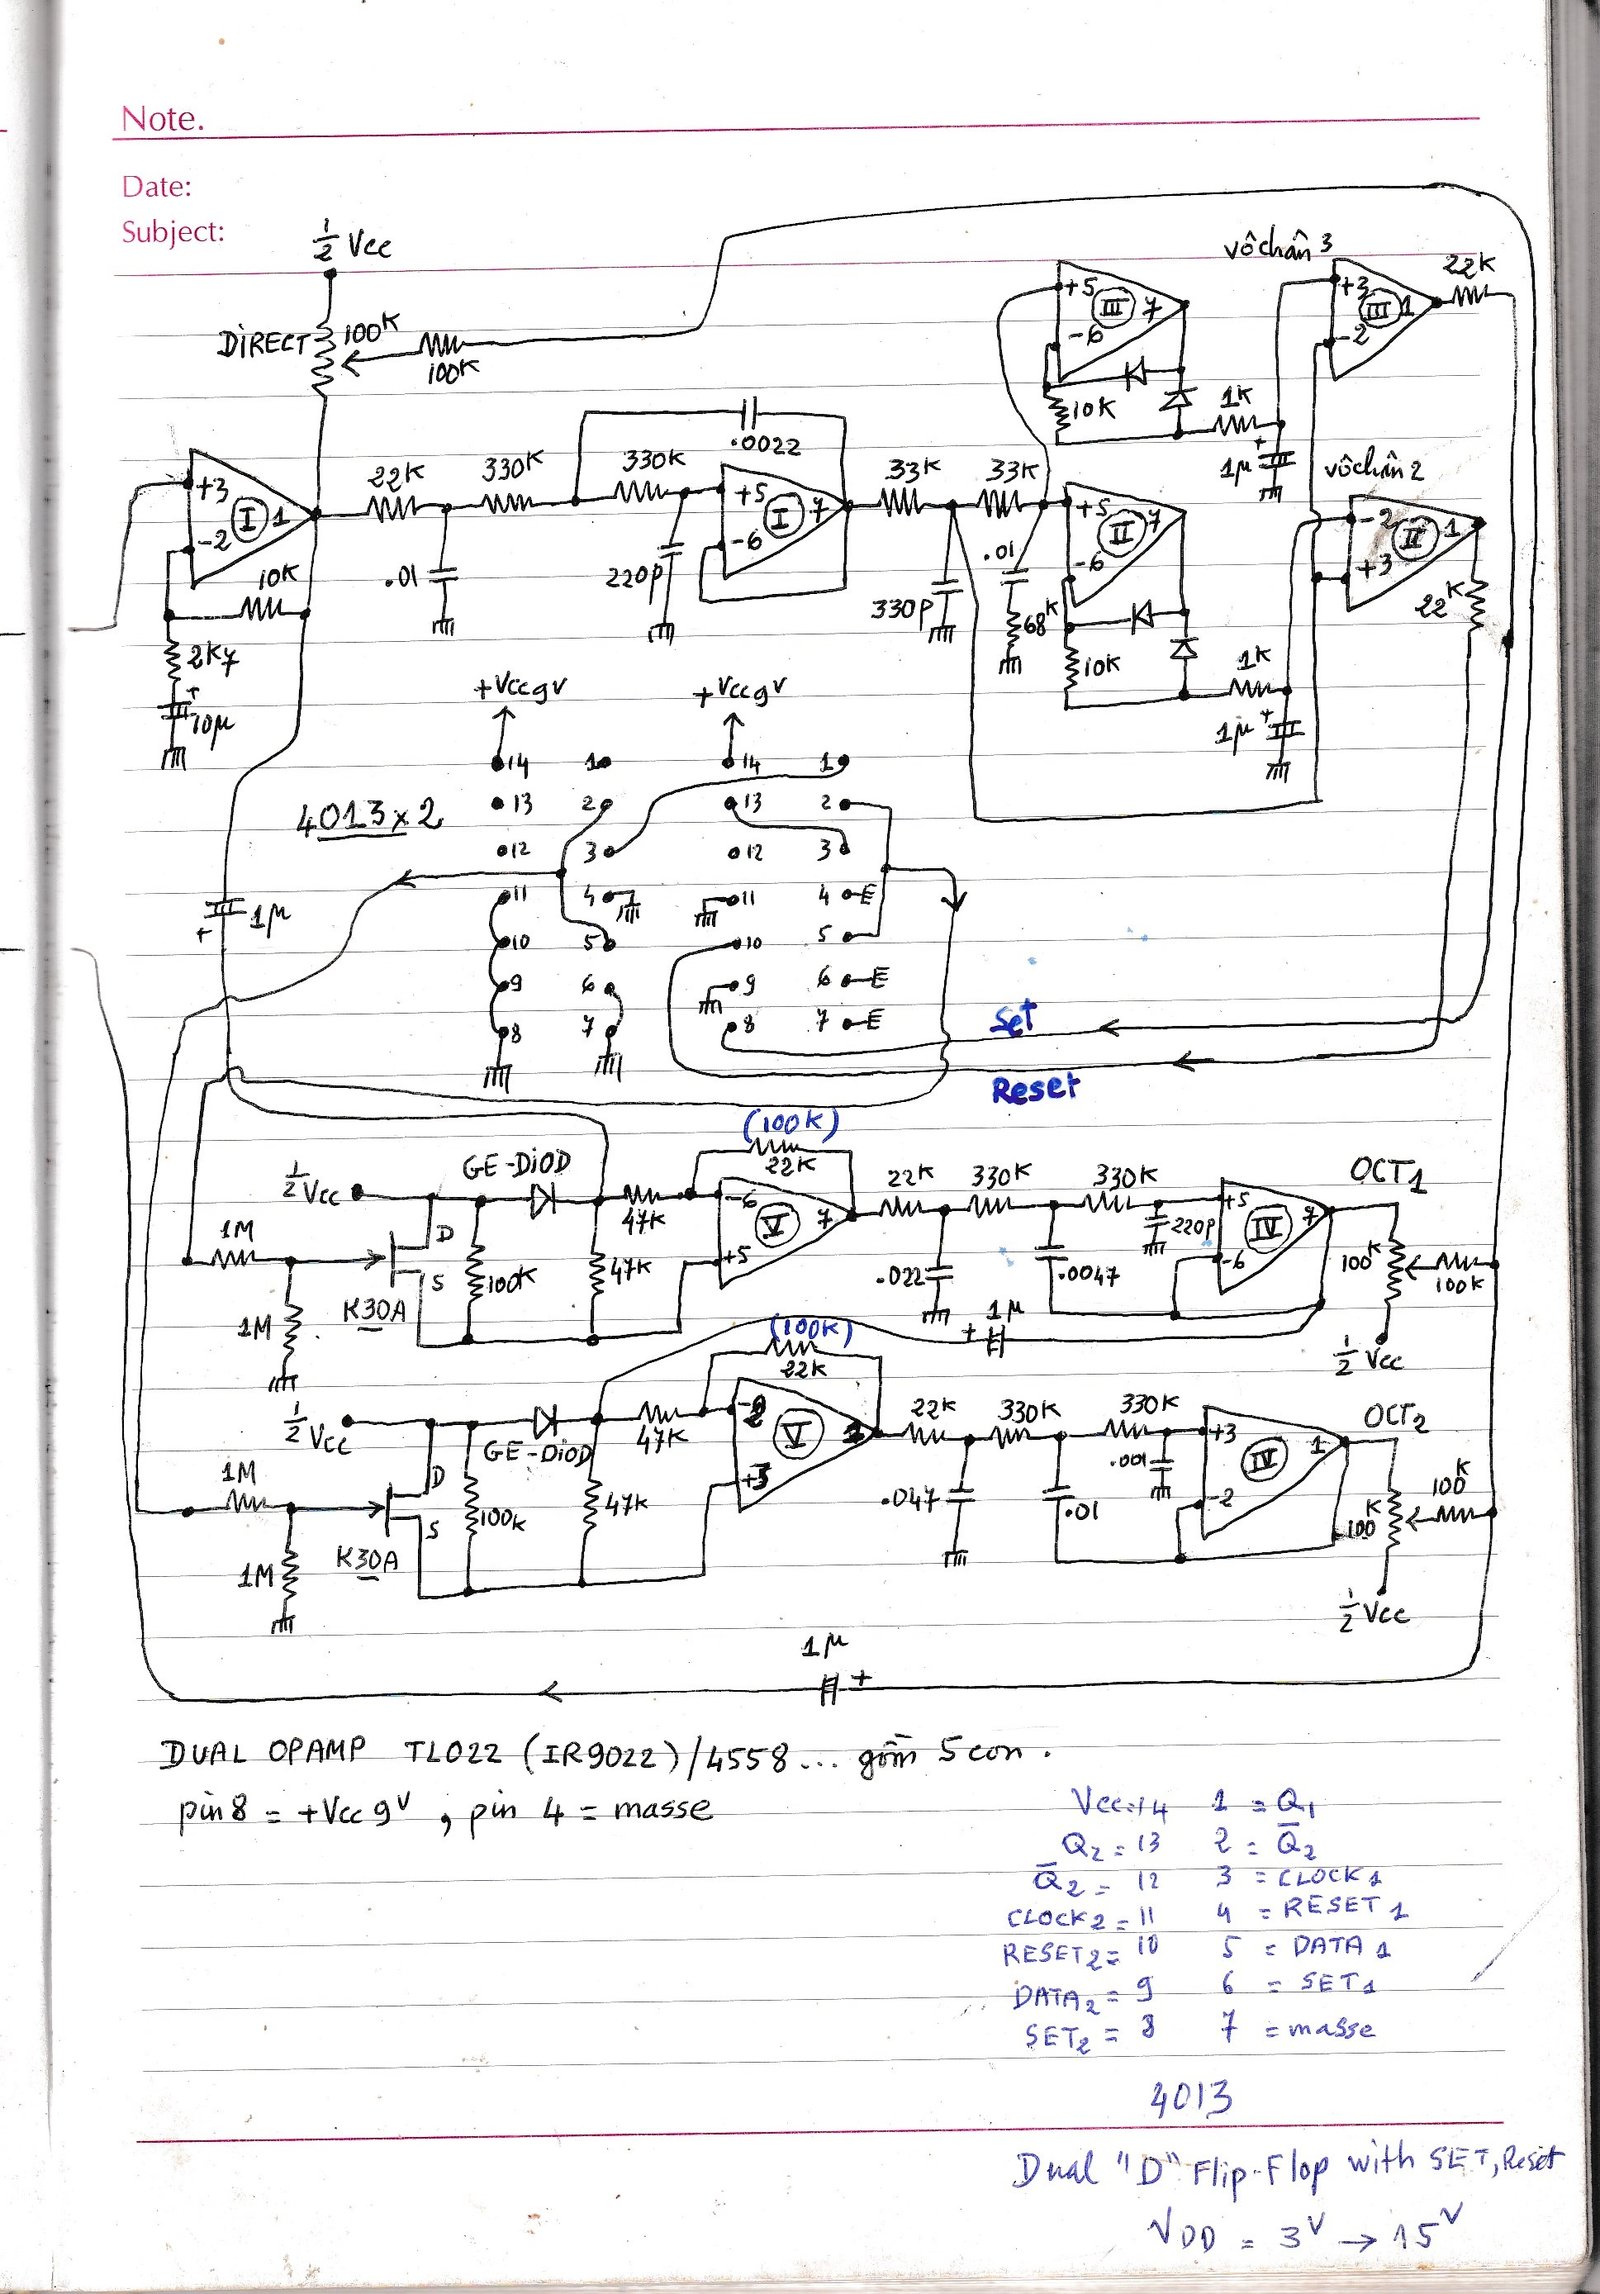 Note.
Date:
Subject:
½ Vcc
DIRECT
100K
100K
vô chân 3
+5
III
7
-6
10K
1K
1µ
+
+3
III
1
-2
22K
+3
I
1
-2
10K
2K7
+
10µ
22K
330K
330K
.0022
.01
220P
+5
I
7
-6
33K
33K
330P
.01
68K
+5
II
7
-6
10K
1K
1µ +
vô chân 2
-2
II
1
+3
22K
+Vcc 9V
+Vcc 9V
4013x2
14 1
13 2
12 3
11 4
10 5
9 6
8 7
14 1
13 2
12 3
11 4 E
10 5
9 6 E
8 7 E
1µ
+
Set
Reset
½ Vcc
GE-DIOD
1M
1M
D
S
K30A
100K
47K
47K
(100K)
22K
-6
V
7
+5
22K
330K
330K
.022
.0047
220P
+5
IV
7
-6
OCT1
100K
100K
½ Vcc
1µ
+
½ Vcc
GE-DIOD
1M
1M
D
S
K30A
100K
47K
47K
(100K)
22K
-2
V
1
+3
22K
330K
330K
.047
.01
.001
+3
IV
1
-2
OCT2
100K
100K
½ Vcc
1µ
+
DUAL OPAMP TL022 (IR9022)/4558... gồm 5 con.
pin 8 = +Vcc 9V , pin 4 = masse
Vcc=14 1 = Q1
Q2 = 13 2 = Q̅2
Q̅2 = 12 3 = CLOCK1
CLOCK2 = 11 4 = RESET1
RESET2 = 10 5 = DATA1
DATA2 = 9 6 = SET1
SET2 = 8 7 = masse
4013
Dual "D" Flip-Flop with SET, Reset
VDD = 3V → 15V